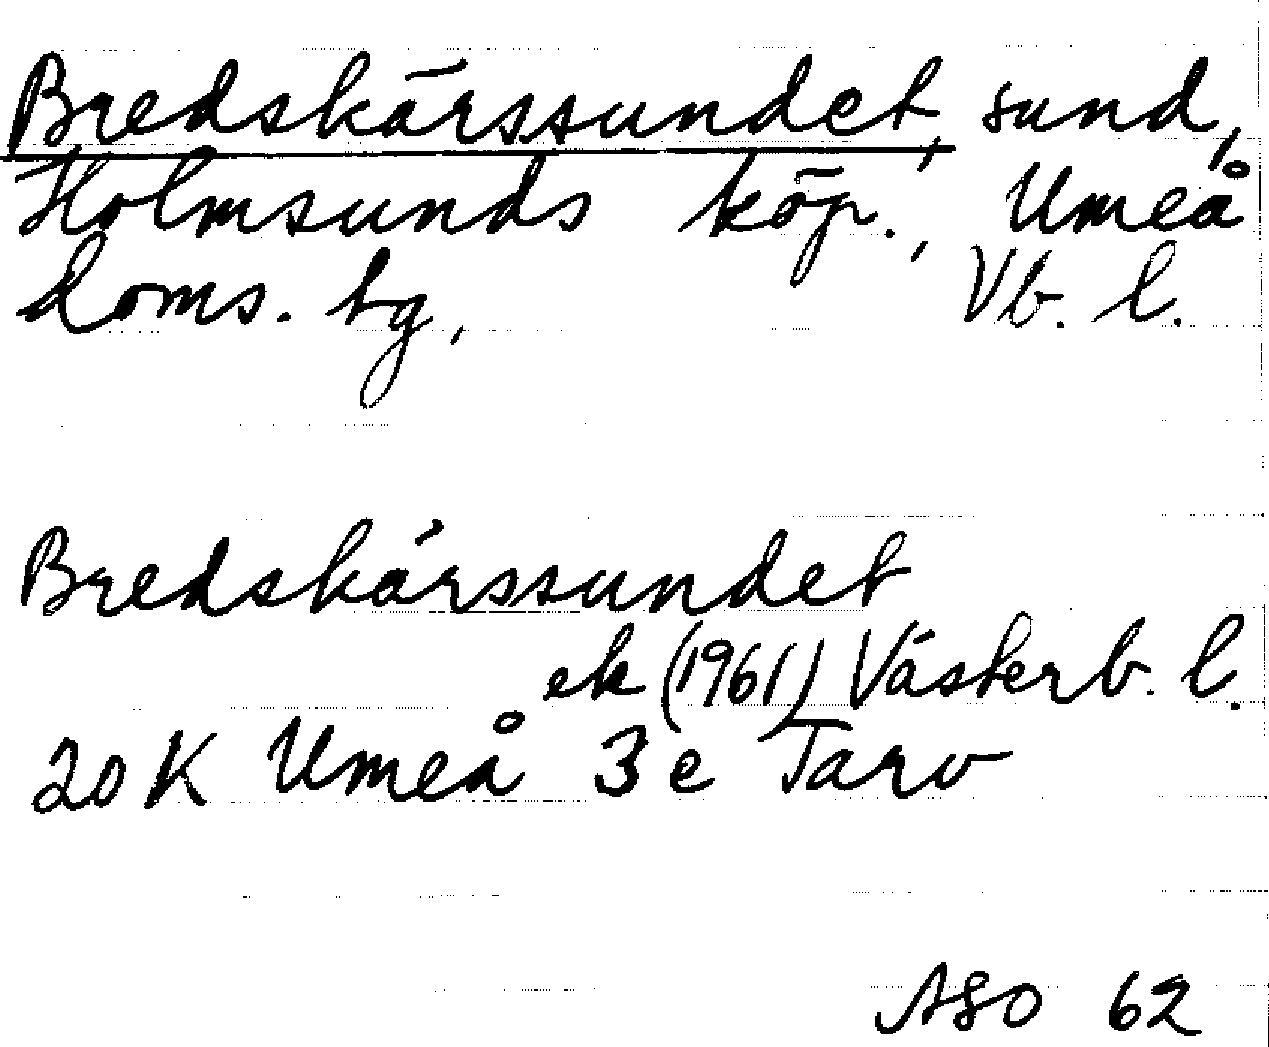 Bredskärssundet, sund,
Holmsunds köp., Umeå
doms. hg, Vb. l.
Bredskärssundet
ek (1961) Västerb. l.
20 K Umeå 3 e Tarv
ASO 62